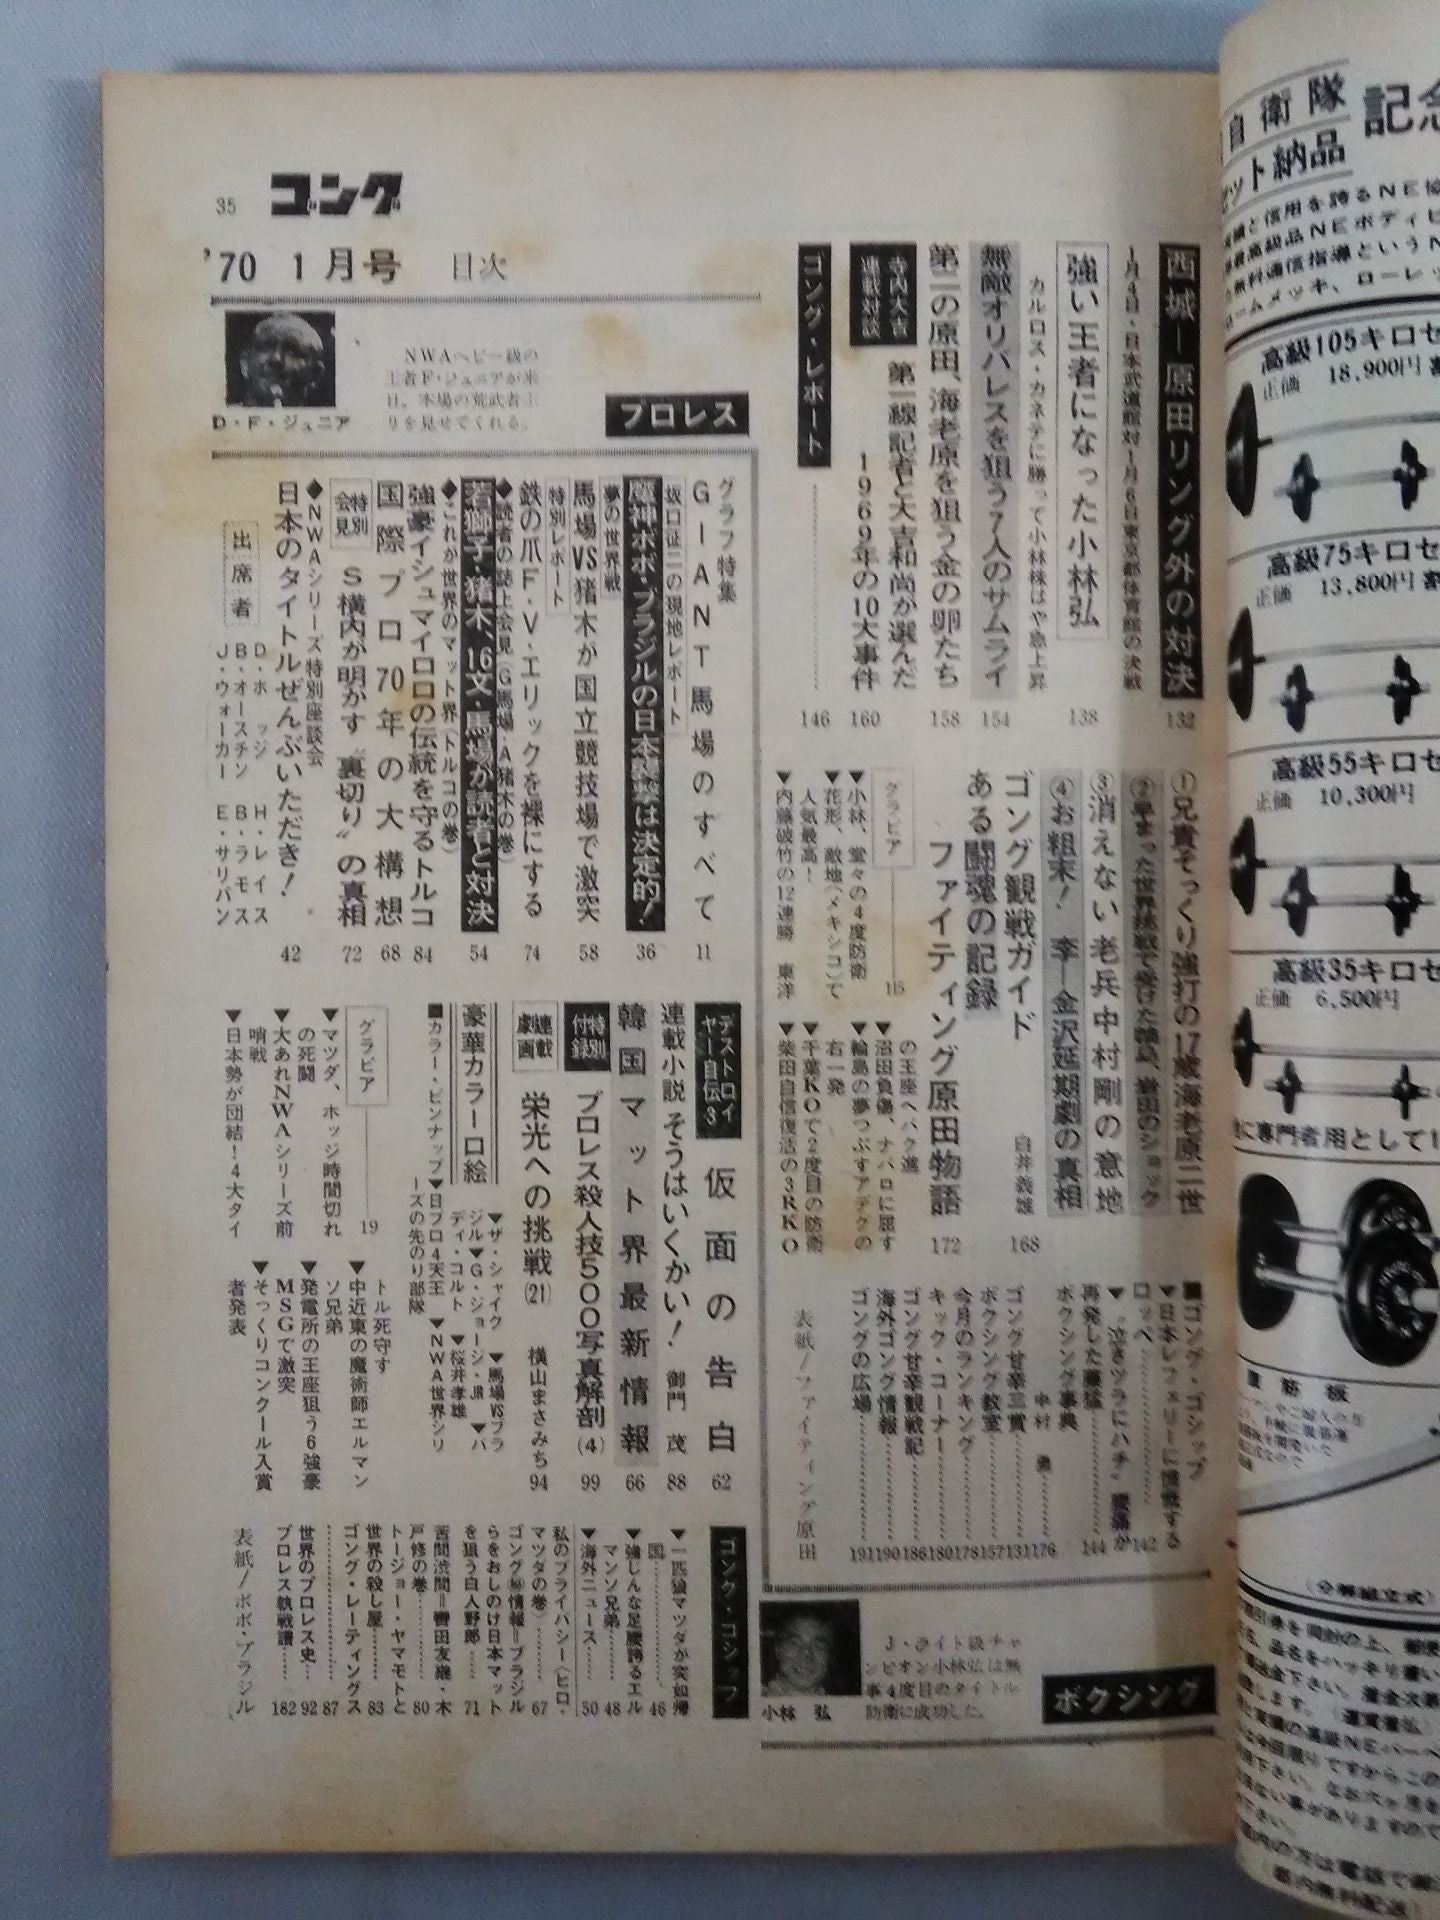 35
ゴング
'70 1月号 目次
D・F・ジュニア
NWAヘビー級の
王者F・ジュニアが来
日。本場の荒武者ぶ
りを見せてくれる。
プロレス
グラフ特集
GIANT馬場のすべて 11
坂口征二の現地レポート
魔神ボボ・ブラジルの日本襲撃は決定的! 36
夢の世界戦
馬場VS猪木が国立競技場で激突 58
特別レポート
鉄の爪F・V・エリックを裸にする 74
◆読者の誌上会見(G馬場・A猪木の巻)
若獅子・猪木、16文・馬場が読者と対決 54
◆これが世界のマット界(トルコの巻)
強豪イシュマイロロの伝統を守るトルコ 84
国際プロ70年の大構想 68
特別会見
S横内が明かす〝裏切り〟の真相 72
◆NWAシリーズ特別座談会
日本のタイトルぜんぶいただき! 42
出席者
D・ホッジ H・レイス
B・オースチン B・ラモス
J・ウォーカー E・サリバン
デストロイヤー自伝3
仮面の告白 62
連載小説 そうはいくかい! 御門 茂 88
韓国マット界最新情報 66
特別付録
プロレス殺人技500写真解剖(4) 99
連載劇画
栄光への挑戦(21) 横山まさみち 94
豪華カラー口絵
■カラー・ピンナップ
▼ザ・シャイク ▼馬場VSブラ
ジル ▼G・ジョージ・JR ▼バ
ディ・コルト ▼桜井孝雄
▼日プロ4天王 ▼NWA世界シリ
ーズの先のり部隊
グラビア 19
▼マツダ、ホッジ時間切れ
の死闘
▼大あれNWAシリーズ前
哨戦
▼日本勢が団結!4大タイ
トル死守す
▼中近東の魔術師エルマン
ソ兄弟
▼発電所の王座狙う6強豪
MSGで激突
▼そっくりコンクール入賞
者発表
ゴング・ゴシップ
▼一匹狼マツダが突如帰
国 46
▼強じんな足腰誇るエル
マンソ兄弟 48
▼海外ニュース 50
私のプライバシー(ヒロ・
マツダの巻) 67
ゴング㊙情報=ブラジル
らをおしのけ日本マット
を狙う白人野郎 71
苦問渋問=豊田友継・木
戸修の巻 80
トージョー・ヤマモトと
世界の殺し屋 83
ゴング・レーティングス
87
世界のプロレス史 92
プロレス熱戦譜 182
表紙/ボボ・ブラジル
西城—原田リング外の対決 132
1月4日・日本武道館対1月6日東京都体育館の決戦
強い王者になった小林弘 138
カルロス・カネテに勝って小林株はや急上昇
無敵オリバレスを狙う7人のサムライ 154
第二の原田、海老原を狙う金の卵たち 158
寺内大吉連載対談
第一線記者と大吉和尚が選んだ
1969年の10大事件 160
ゴング・レポート 146
①兄貴そっくり強打の17歳海老原二世
②早まった世界挑戦で受けた
③消えない老兵中村剛の意地
④お粗末! 李—金沢延期劇の真相
ゴング観戦ガイド 168
ある闘魂の記録 白井義雄
ファイティング原田物語 172
グラビア 115
▼小林、堂々の4度防衛
▼花形、敵地(メキシコ)で
人気最高!
▼内藤破竹の12連勝 東洋
の王座へバク進
▼沼田負傷、ナバロに屈す
▼輪島の夢つぶすアデグの
右一発
▼千葉KOで2度目の防衛
▼柴田自信復活の3RKO
■ゴング・ゴシップ
▼日本レフェリーに憤慨する
ロッペ 142
▼〝泣きツラにハチ〟慶
再発した藤猛 144
ボクシング事典
中村 勇 176
ゴング甘辛三賞 131
ボクシング教室 157
今月のランキング 178
キック・コーナー 180
ゴング甘辛観戦記 186
海外ゴング情報 190
ゴングの広場 191
表紙/ファイティング原田
小林 弘
J・ライト級チャ
ンピオン小林弘は無
事4度目のタイトル
防衛に成功した。
ボクシング
自衛隊
ット納品
記念
高級105キロセ
正価 18,900円
高級75キロセ
正価 13,800円
高級55キロセ
正価 10,300円
高級35キロセ
正価 6,500円
に専門者用として1
腹筋板
(分解組立式)